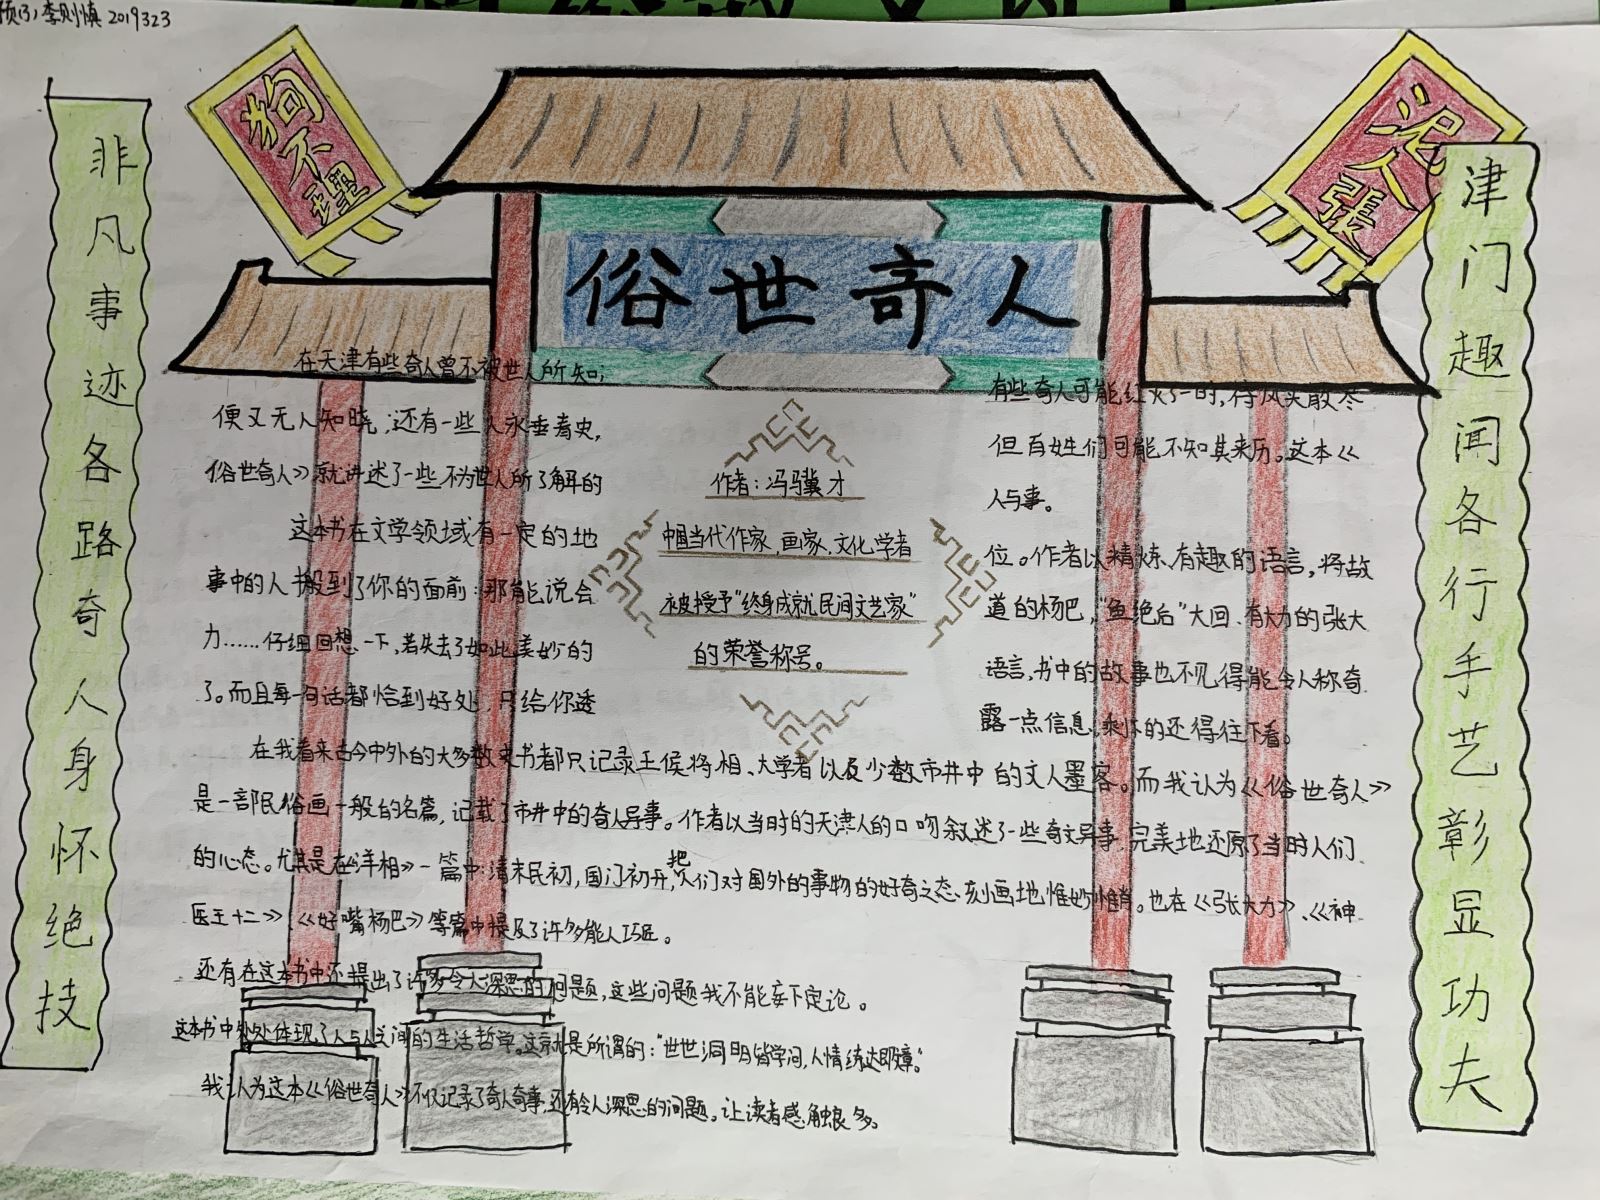 预(3)李则慎 2019323
狗不理
泥人張
俗世奇人
非凡事迹各路奇人身怀绝技
津门趣闻各行手艺彰显功夫
在天津有些奇人曾不被世人所知；有些奇人可能红火了一时，待风头散尽
便又无人知晓；还有一些人永垂青史，但百姓们可能不知其来历。这本《
俗世奇人》就讲述了一些不为世人所了解的人与事。
这本书在文学领域有一定的地位。作者以精炼、有趣的语言，将故
事中的人书搬到了你的面前：那能说会道的杨巴，“鱼绝后”大回、有大力的张大
力……仔细回想一下，若失去了如此美妙的语言，书中的故事也不见得能令人称奇
了。而且每一句话都恰到好处，只给你透露一点信息，剩下的还得往下看。
作者：冯骥才
中国当代作家，画家，文化学者
被授予“终身成就民间文艺家”
的荣誉称号。
在我看来古今中外的大多数史书都只记录王侯将相、大学者以及少数市井中的文人墨客。而我认为《俗世奇人》
是一部民俗画一般的名篇，记载了市井中的奇人异事。作者以当时的天津人的口吻叙述了一些奇文异事，完美地还原了当时人们
的心态。尤其是在《洋相》一篇中：清末民初，国门初开，把人们对国外的事物的好奇之态、刻画地惟妙惟肖。也在《张大力》、《神
医王十二》、《好嘴杨巴》等篇中提及了许多能人巧匠。
还有在这本书中还提出了许多令人深思的问题，这些问题我不能妄下定论。
这本书中处处体现了人与人之间的生活哲学。这就是所谓的：“世世洞明皆学问，人情练达即文章。”
我认为这本《俗世奇人》不仅记录了奇人奇事，还有令人深思的问题。让读者感触良多。